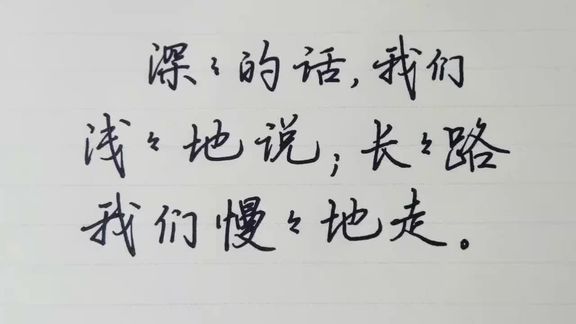 深々的话,我们
浅々地说;长々路
我们慢々地走。